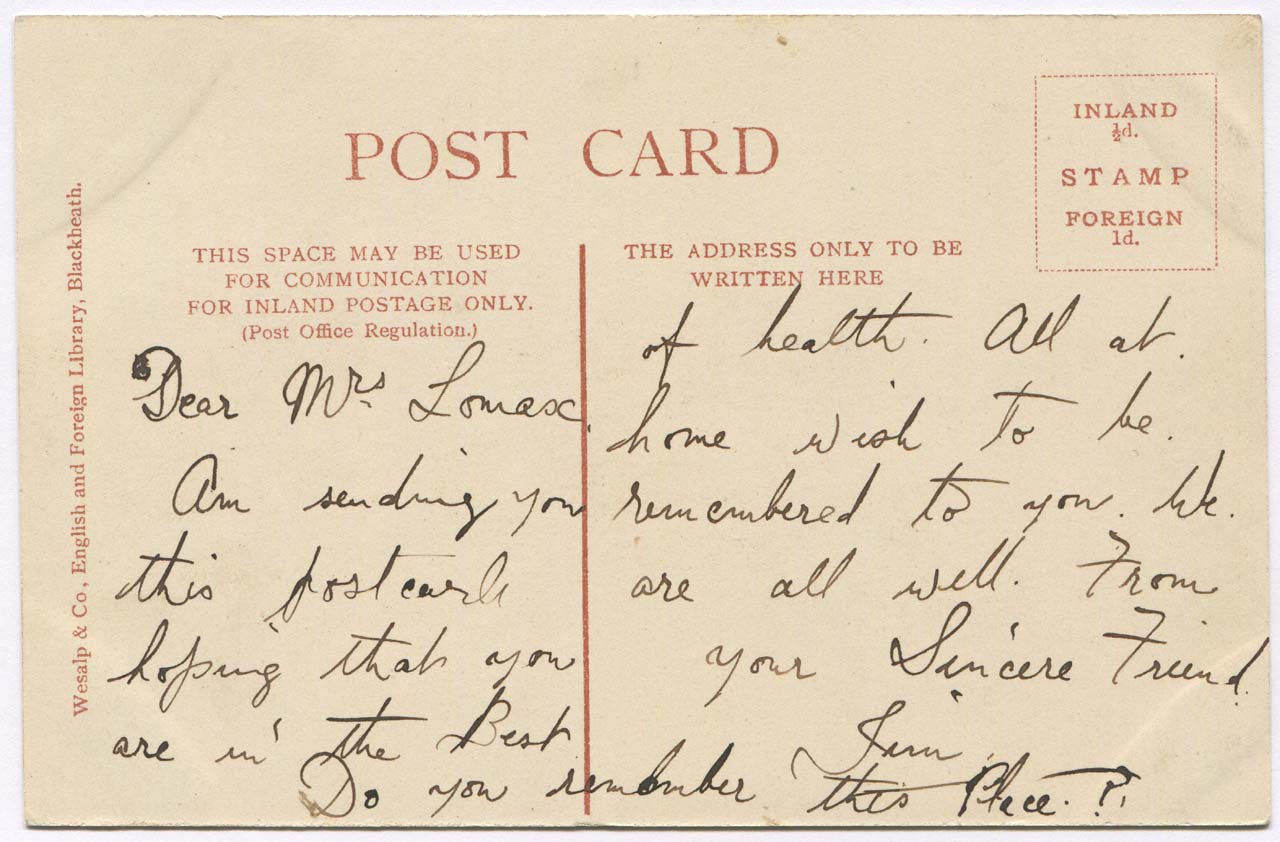 POST CARD
INLAND
½d.
STAMP
FOREIGN
1d.
THIS SPACE MAY BE USED
FOR COMMUNICATION
FOR INLAND POSTAGE ONLY.
(Post Office Regulation.)
THE ADDRESS ONLY TO BE
WRITTEN HERE
Wesalp & Co., English and Foreign Library, Blackheath.
Dear Mrs Lomax.
Am sending you
this postcard
hoping that you
are in the Best
of health. All at.
home wish to be.
remembered to you. We.
are all well. From
your Sincere Friend.
Jim.
Do you remember this Place.?.